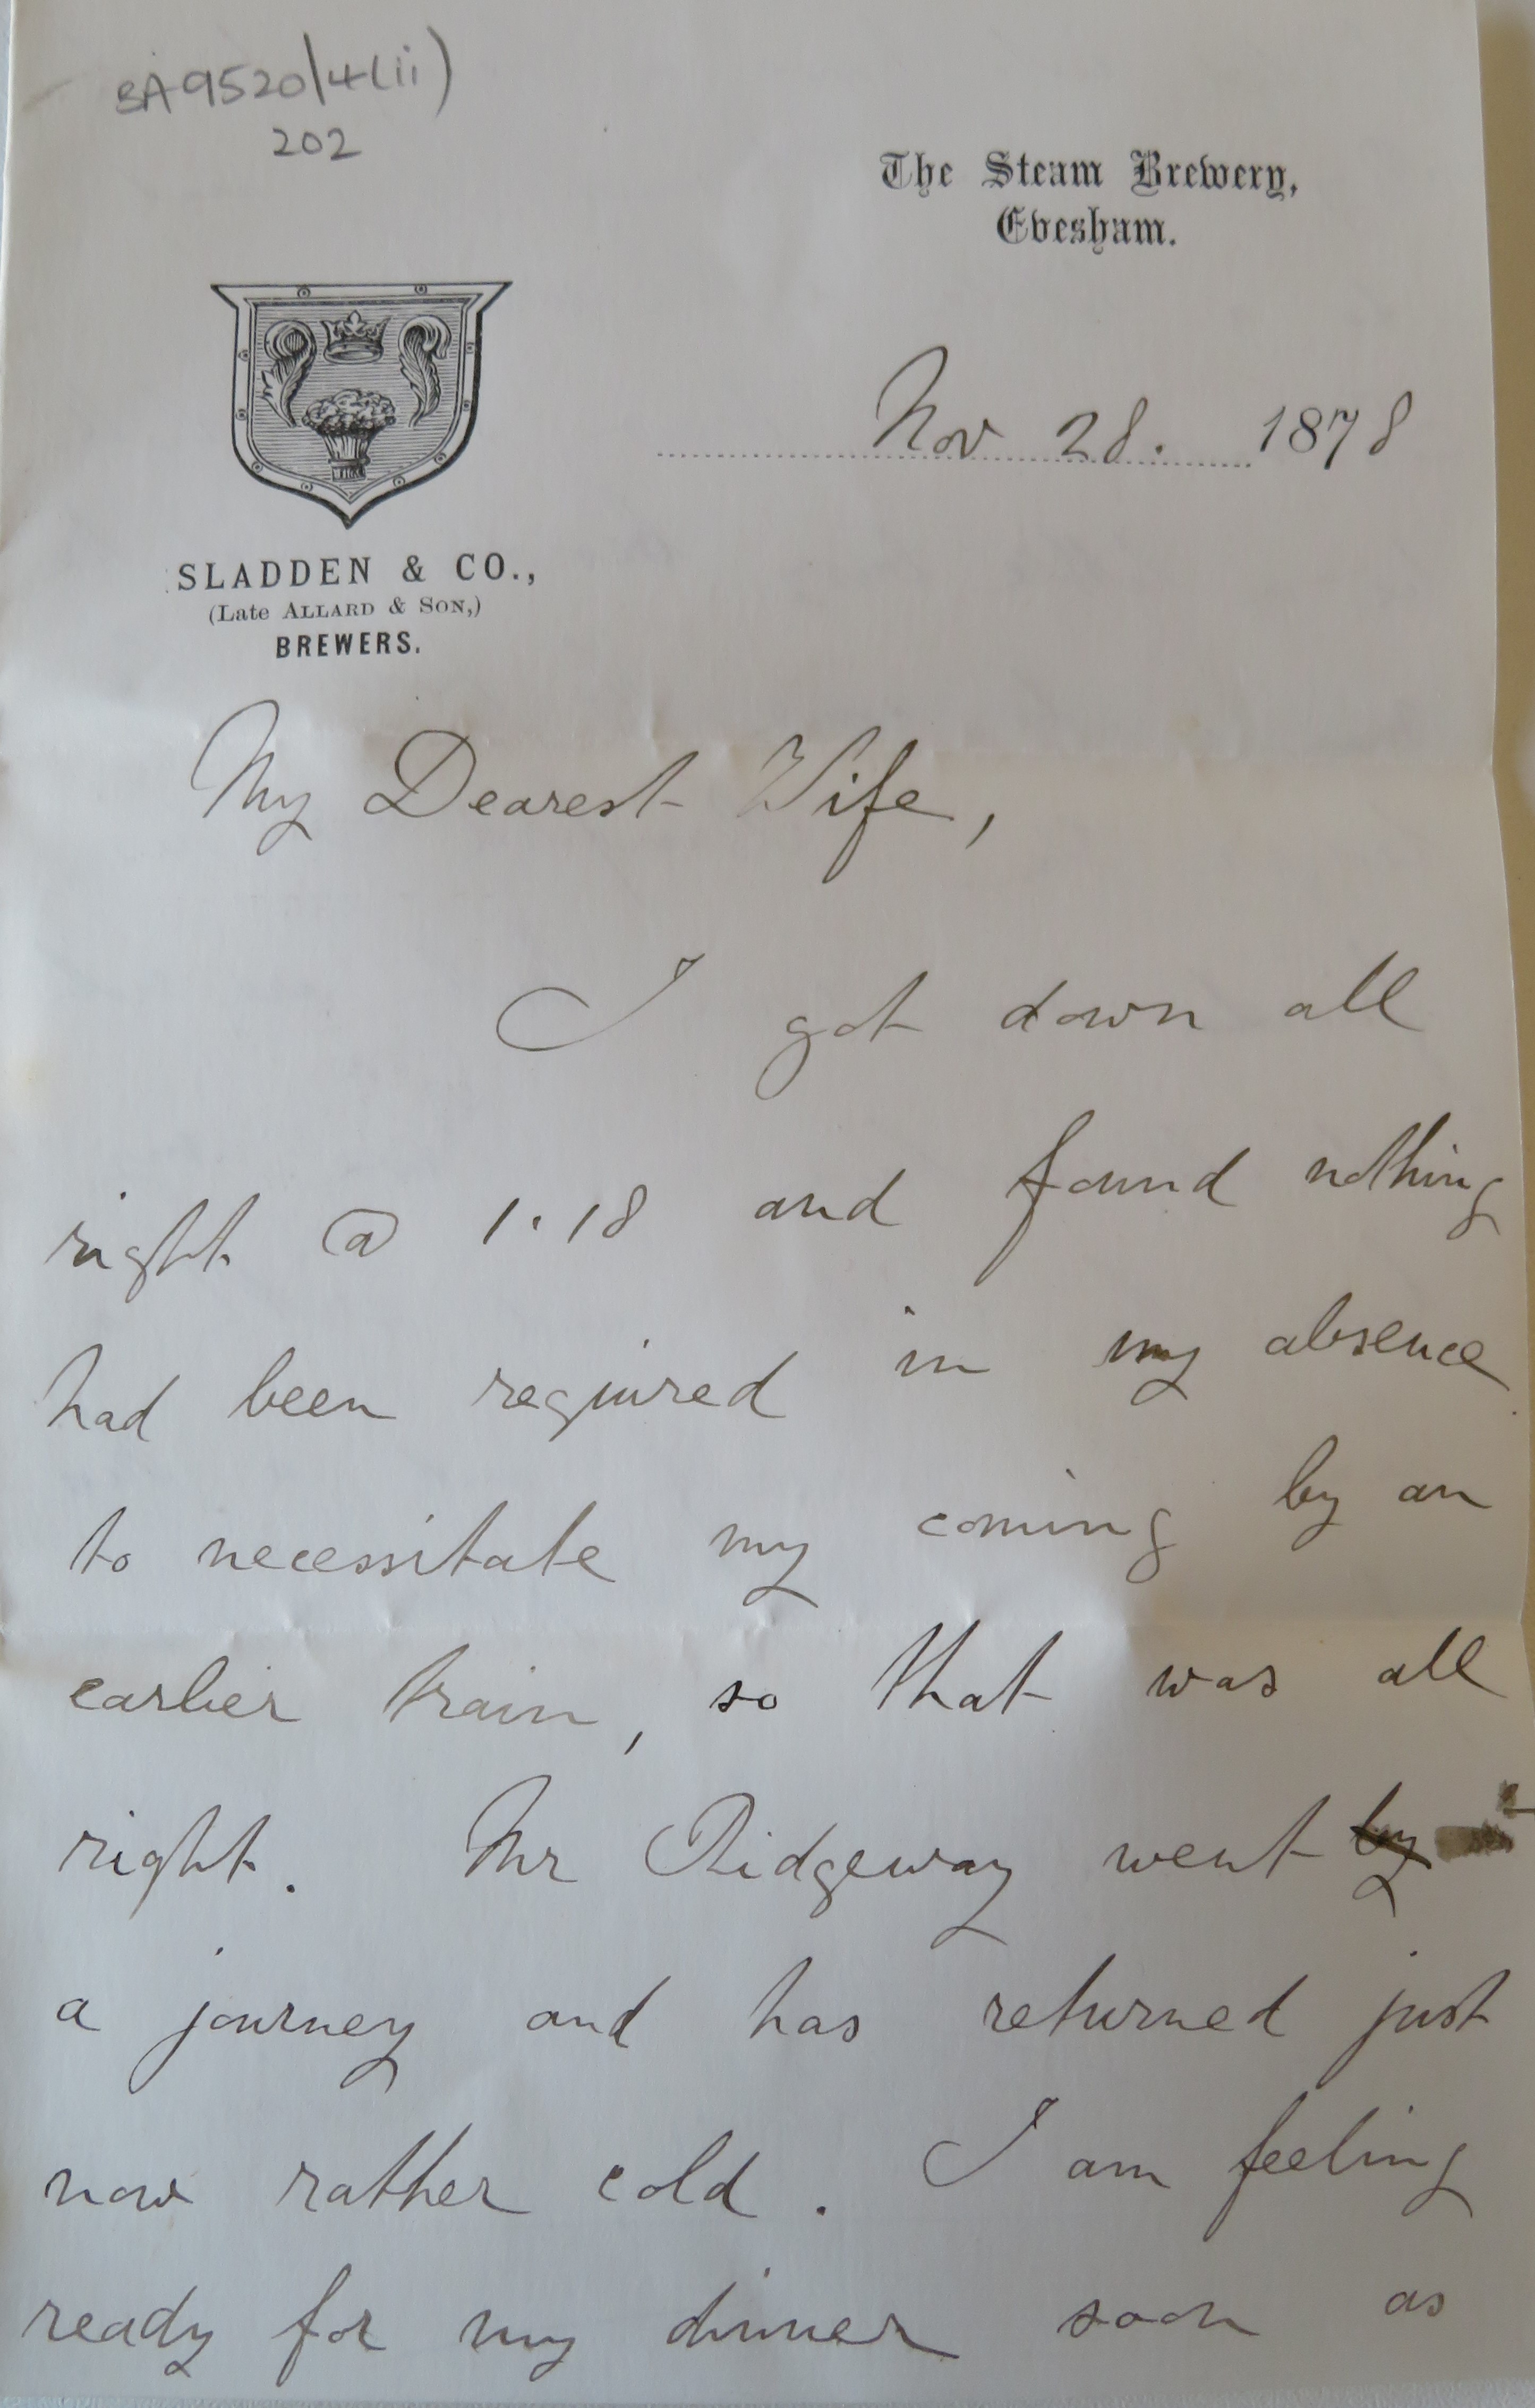 BA9520/4(ii)
202
The Steam Brewery,
Evesham.
Nov 28. 1878
SLADDEN & CO.,
(Late ALLARD & SON,)
BREWERS.
My Dearest Wife,
I got down all
right @ 1.18 and found nothing
had been required in my absence
to necessitate my coming by an
earlier train, so that was all
right. Mr Ridgeway went by
a journey and has returned just
now rather cold. I am feeling
ready for my dinner soon as